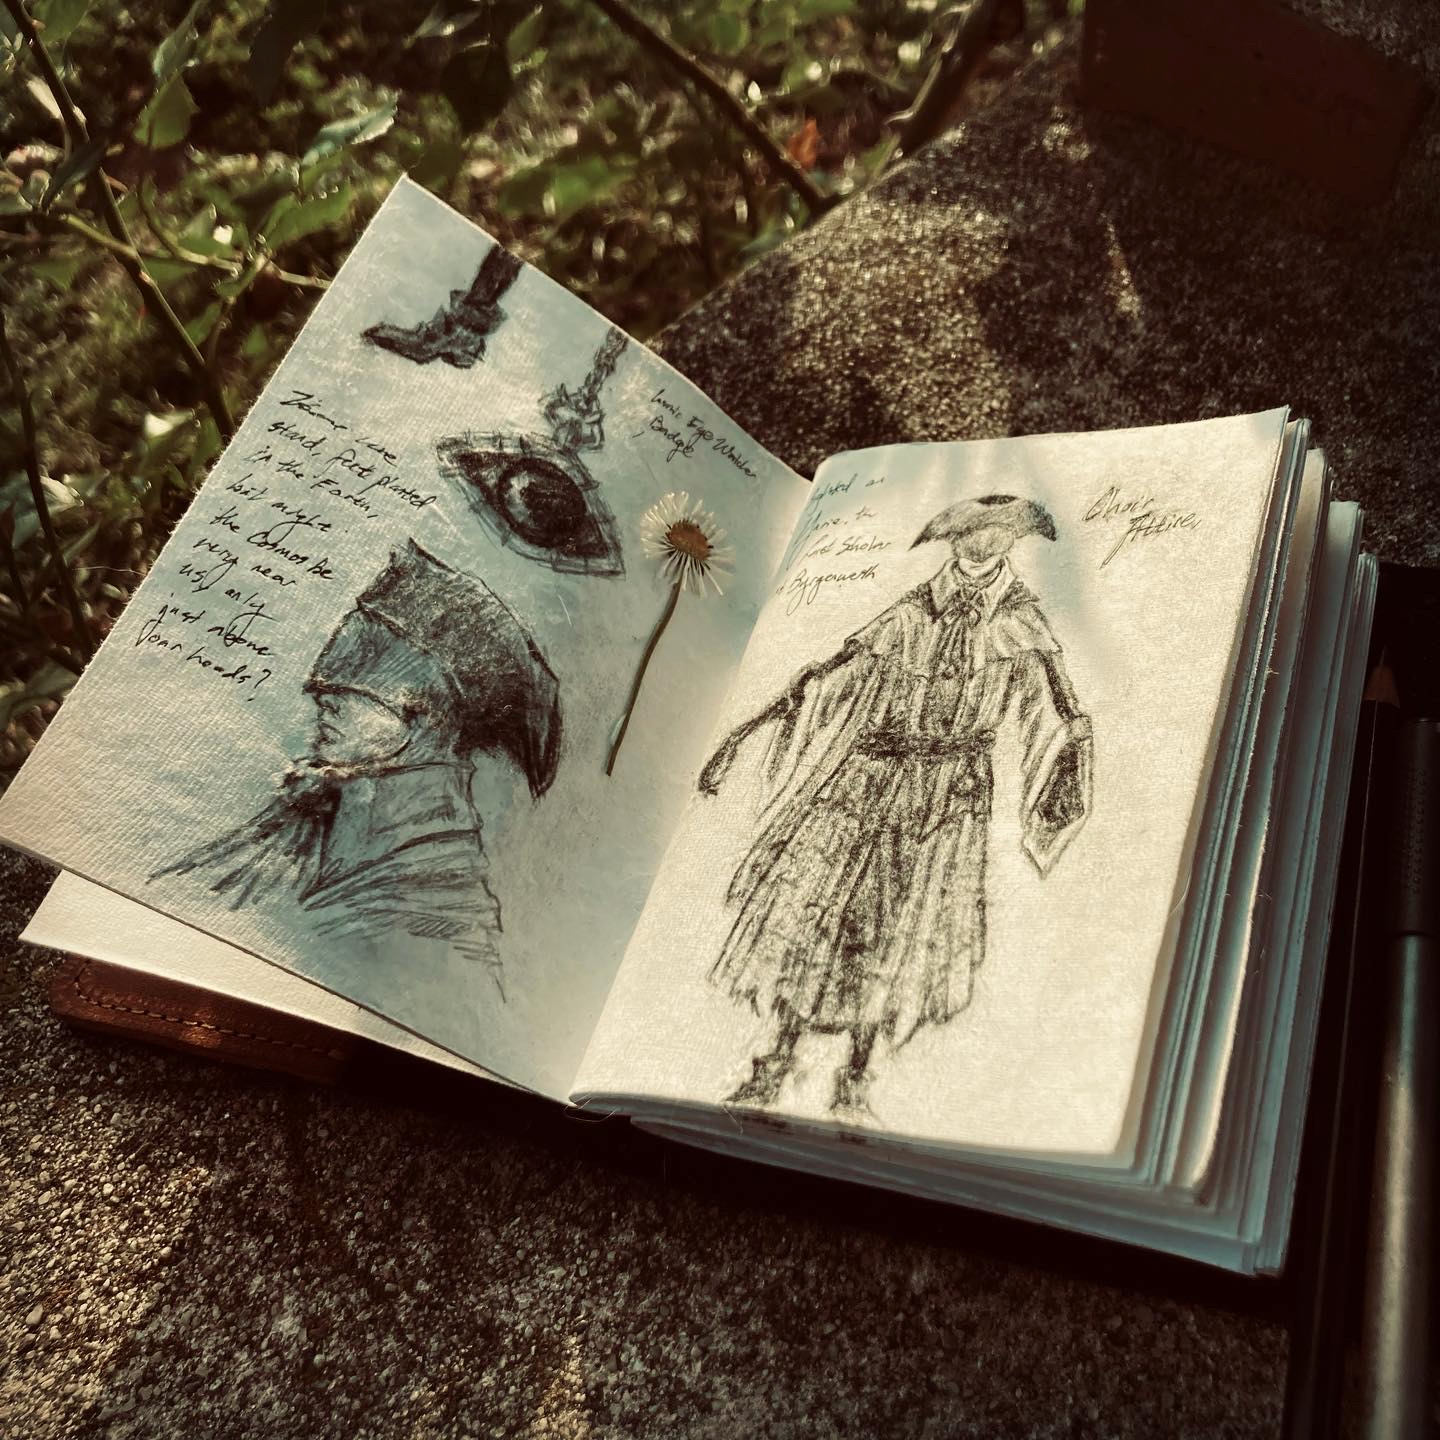 Here we
stand, feet planted
in the Earth,
but might
the Cosmos be
very near
us, only
just above
our heads?
Eye Watcher
Badge
as
the
Scholar
Byrgenwerth
Choir
Attire